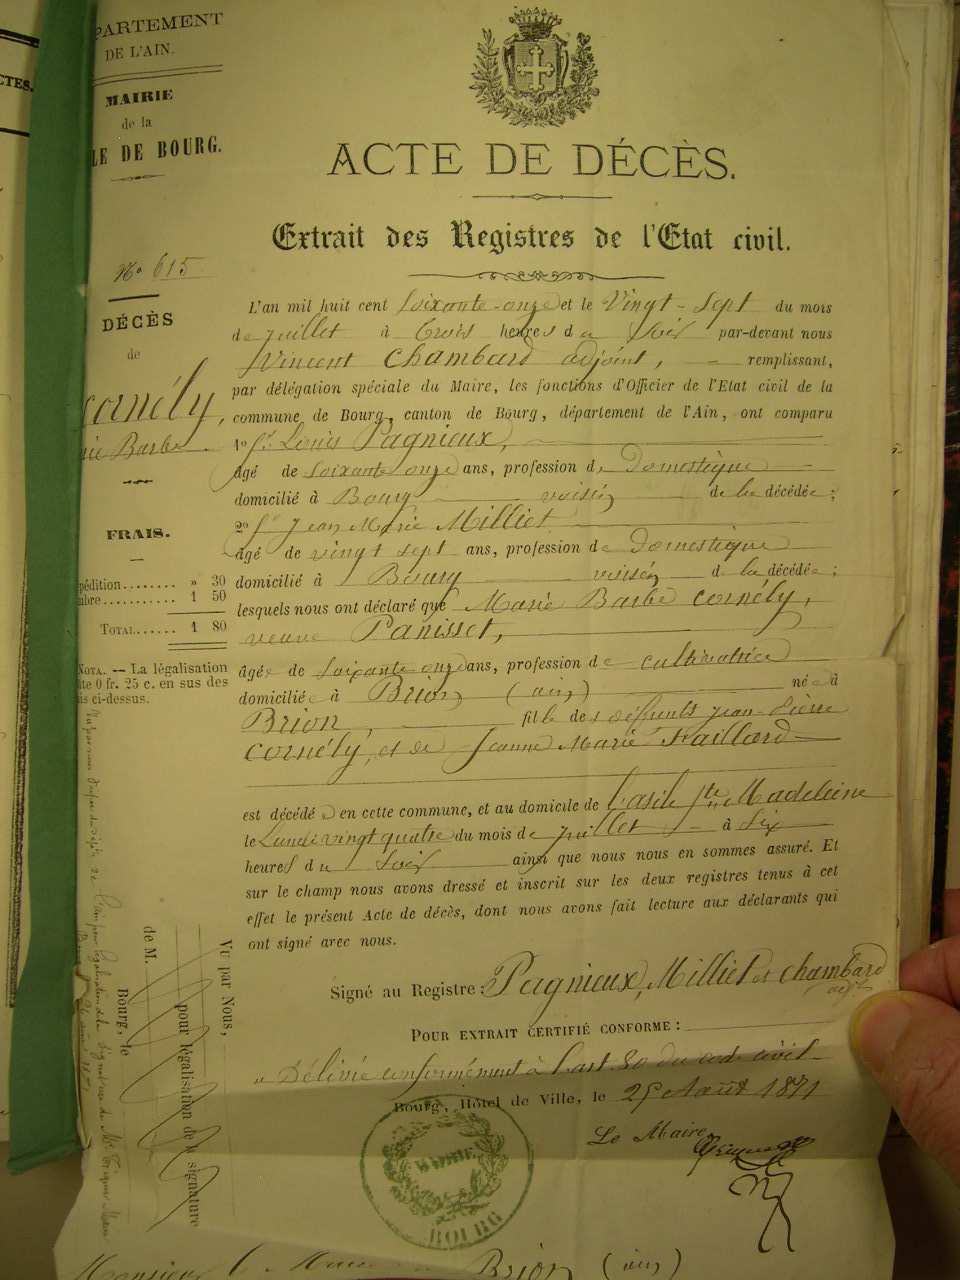 CTES.
PARTEMENT
DE L'AIN.
MAIRIE
de la
LE DE BOURG.
ACTE DE DÉCÈS.
Extrait des Registres de l'Etat civil.
No 615
DÉCÈS
de
cornély,
ie Barbe
FRAIS.
pédition........ » 30
mbre........... 1 50
TOTAL...... 1 80
NOTA. — La légalisation
te 0 fr. 25 c. en sus des
is ci-dessus.
L'an mil huit cent Soixante-onze et le Vingt-sept du mois
de juillet à trois heures du Soir par-devant nous
Vincent Chambard adjoint, remplissant,
par délégation spéciale du Maire, les fonctions d'Officier de l'Etat civil de la
commune de Bourg, canton de Bourg, département de l'Ain, ont comparu
1o Sr Louis Pagnieux,
âgé de Soixante onze ans, profession de Domestique
domicilié à Bourg voisin de la décédée;
2o Sr Jean Marie Milliet
âgé de vingt sept ans, profession de Domestique
domicilié à Bourg voisin de la décédée;
lesquels nous ont déclaré que Marie Barbe cornély,
veuve Panisset,
âgée de Soixante onze ans, profession de cultivatrice
domiciliée à Brion (ain) née à
Brion, fille des défunts Jean-Pierre
cornély, et de Jeanne Marie Faillard
est décédée en cette commune, et au domicile de l'asile Ste Madeleine
le Lundi vingt quatre du mois de juillet à Six
heures du Soir ainsi que nous nous en sommes assuré. Et
sur le champ nous avons dressé et inscrit sur les deux registres tenus à cet
effet le présent Acte de décès, dont nous avons fait lecture aux déclarants qui
ont signé avec nous.
Signé au Registre: Pagnieux, Milliet et chambard
adjt
POUR EXTRAIT CERTIFIÉ CONFORME:
Délivré conformément à l'art. 80 du code civil
Bourg, Hôtel de Ville, le 25 Août 1871
Le Maire,
MAIRIE
BOURG
Vu par Nous,
pour légalisation de la signature
de M.
Bourg, le
Monsieur le Maire de Brion (ain)